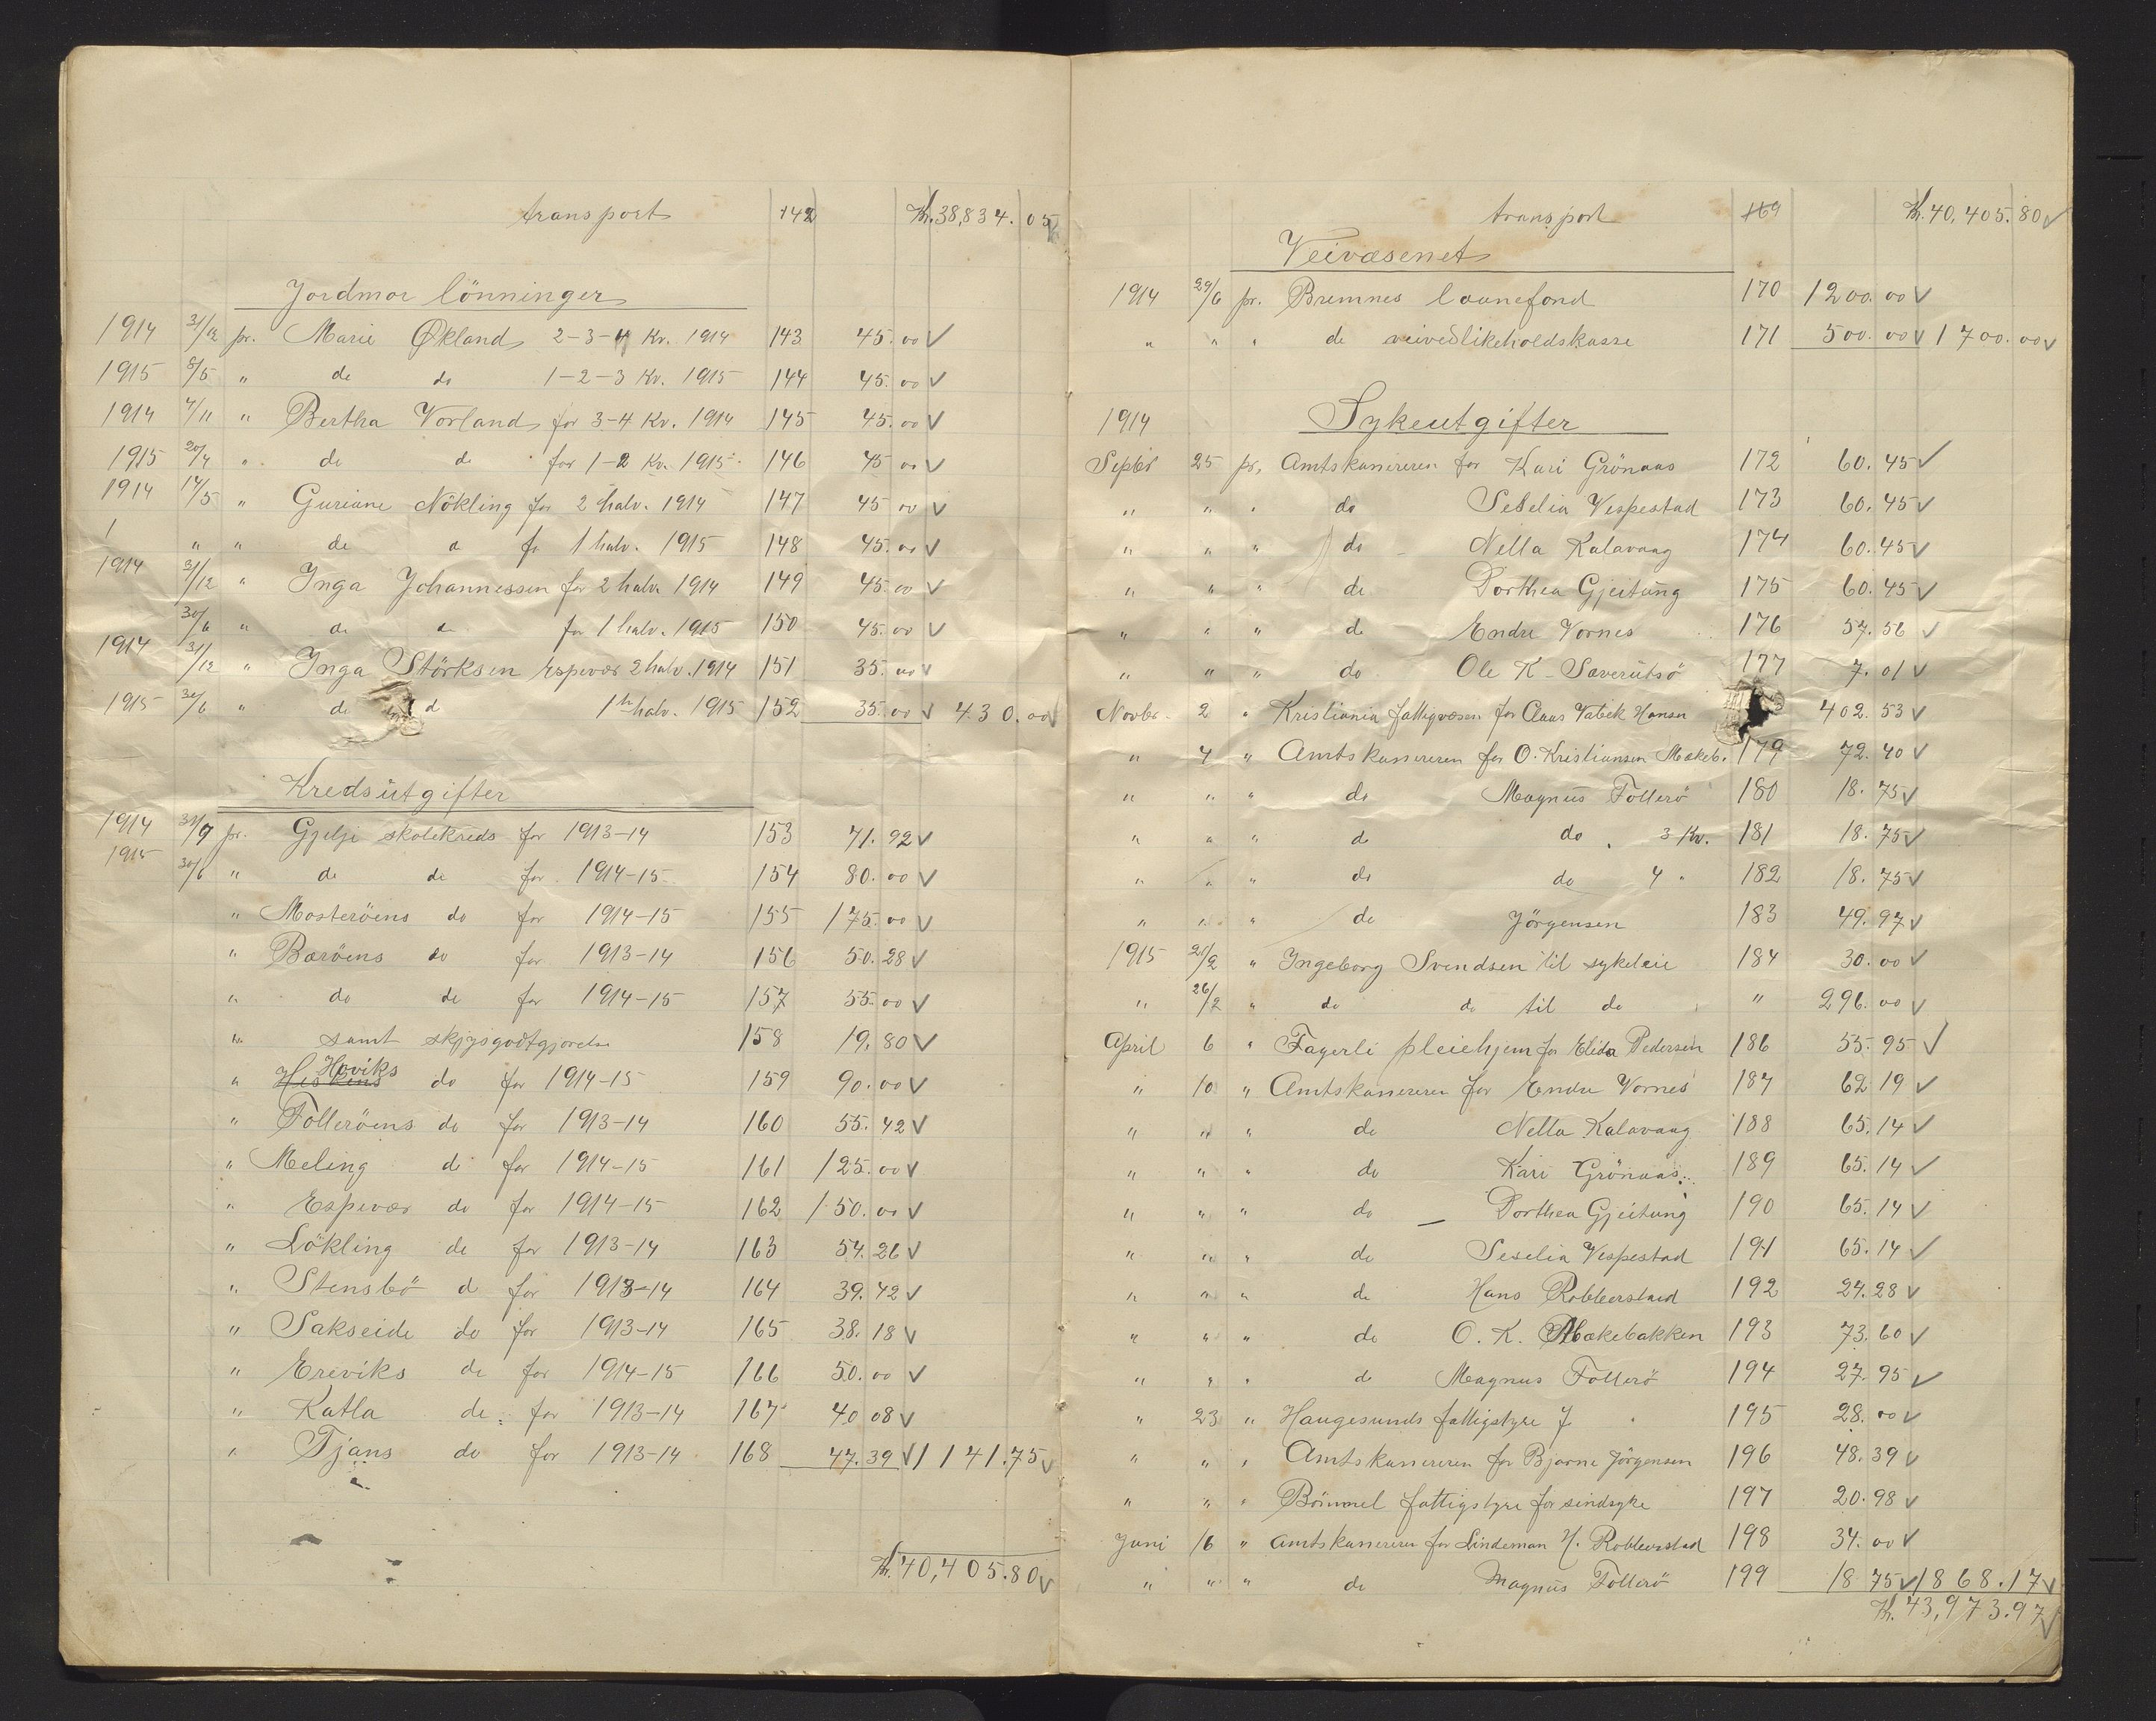 transport 142 Kr. 38,834.05
Jordmor lönninger
1914 31/12 pr. Marie Økland 2-3-4 Kv. 1914 143 45.00 √
1915 5/5 " do do 1-2-3 Kv. 1915 144 45.00 √
1914 7/11 " Bertha Vorland for 3-4 Kv. 1914 145 45.00 √
1915 20/4 " do do for 1-2 Kv. 1915 146 45 00 √
1914 14/5 " Guriane Nökling for 2 halv. 1914 147 45 00 √
" " do d fo 1 halv. 1915 148 45.00 √
1914 31/12 " Inga Johannessen for 2 halv. 1914 149 45.00 √
30/6 " do d for 1 halv. 1915 150 45.00 √
1914 31/12 " Inga Störksen Espevær 2 halv. 1914 151 35.00 √
1915 30/6 " do d 1ste halv. 1915 152 35.00 √ 430.00 √
Kredsutgifter
1914 /9 pr. Gjelje skolekreds for 1913-14 153 71.92 √
1915 30/6 " do do for 1914-15 154 80.00 √
" Mosteröens do for 1914-15 155 175.00 √
" Baröens do for 1913-14 156 50.28 √
" do do for 1914-15 157 55.00 √
" samt skysgodtgjörelse 158 19.80 √
" Hoviks do for 1914-15 159 90.00 √
" Folleröens do for 1913-14 160 55.42 √
" Meling do for 1914-15 161 125.00 √
" Espevær do for 1914-15 162 150.00 √
" Lökling do for 1913-14 163 54.26 √
" Stensbö d for 1913-14 164 39.42 √
" Sakseide do for 1913-14 165 38.18 √
" Ereviks do for 1914-15 166 50.00 √
" Katla do for 1913-14 167 40 08 √
" Tjans do for 1913-14 168 47.39 √ 1141.75 √
Kr. 40,405.80 √
transport 169 Kr. 40,405.80 √
Veivæsenet
1914 29/6 pr. Bremnes laanefond 170 1200.00 √
" " " do veivedlikeholdskasse 171 500.00 √ 1700.00 √
1914 Sykeutgifter
Septbr 25 pr. Amtskasereren for Kari Grönaas 172 60.45 √
" " " do Seselia Vespestad 173 60.45 √
" " " do Nella Kalavaag 174 60.45 √
" " " do Dorthea Gjeitung 175 60.45 √
" " " do Endre Vornes 176 57.56 √
" " " do Ole K. Sæverutsö 177 7.01 √
Novbr. 2 " Kristiania fattigvæsen for Claus Vabek Hansen 402.53 √
" 4 " Amtskasereren for O. Kristiansen Mækeb. 179 72.40 √
" " " do Magnus Follerö 180 18.75 √
" " " do do 3 Kv. 181 18.75 √
" " " do do 4 " 182 18.75 √
" " " do Jörgensen 183 49.97 √
1915 21/2 " Ingeborg Svendsen til sykeleie 184 30.00 √
" 26/2 " do do til do " 296.00 √
April 6 " Fagerli pleiehjem for Elida Pedersen 186 55.95 √
" 10 " Amtskasereren for Endre Vornes 187 62 19 √
" " " do Nella Kalavaag 188 65.14 √
" " " do Kari Grönaas 189 65.14 √
" " " do Dorthea Gjeitung 190 65.14 √
" " " do Seselia Vespestad 191 65.14 √
" " " do Hans Robberstad 192 24.28 √
" " " do O. K. Mækebakken 193 73.60 √
" " " do Magnus Follerö 194 27.95 √
" 23 " Haugesunds fattigstyre f. " 195 28.00 √
" " " Amtskasereren for Bjarne Jörgensen 196 48.39 √
" " " Bömmel fattigstyre for sindsyke 197 20.98 √
Juni 16 " Amtskasereren for Lindeman H. Robberstad 198 34.00 √
" " " do Magnus Follerö 199 18 75 √ 1868.17 √
Kr. 43,973.97 √